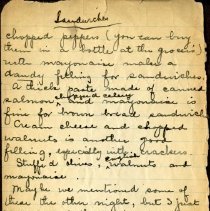 Sandwiches
chopped peppers (you can buy
them in a bottle at the grocer's)
with mayonnaise makes a
dandy filling for sandwiches.
A thick paste made of canned
chopped celery
salmon and mayonnaise is
fine for brown bread sandwiches
Cream cheese and chopped
walnuts is another good
filling, especially with crackers.
Stuffed olives, English walnuts and
mayonnaise.
Maybe we mentioned some of
these the other night, but I just